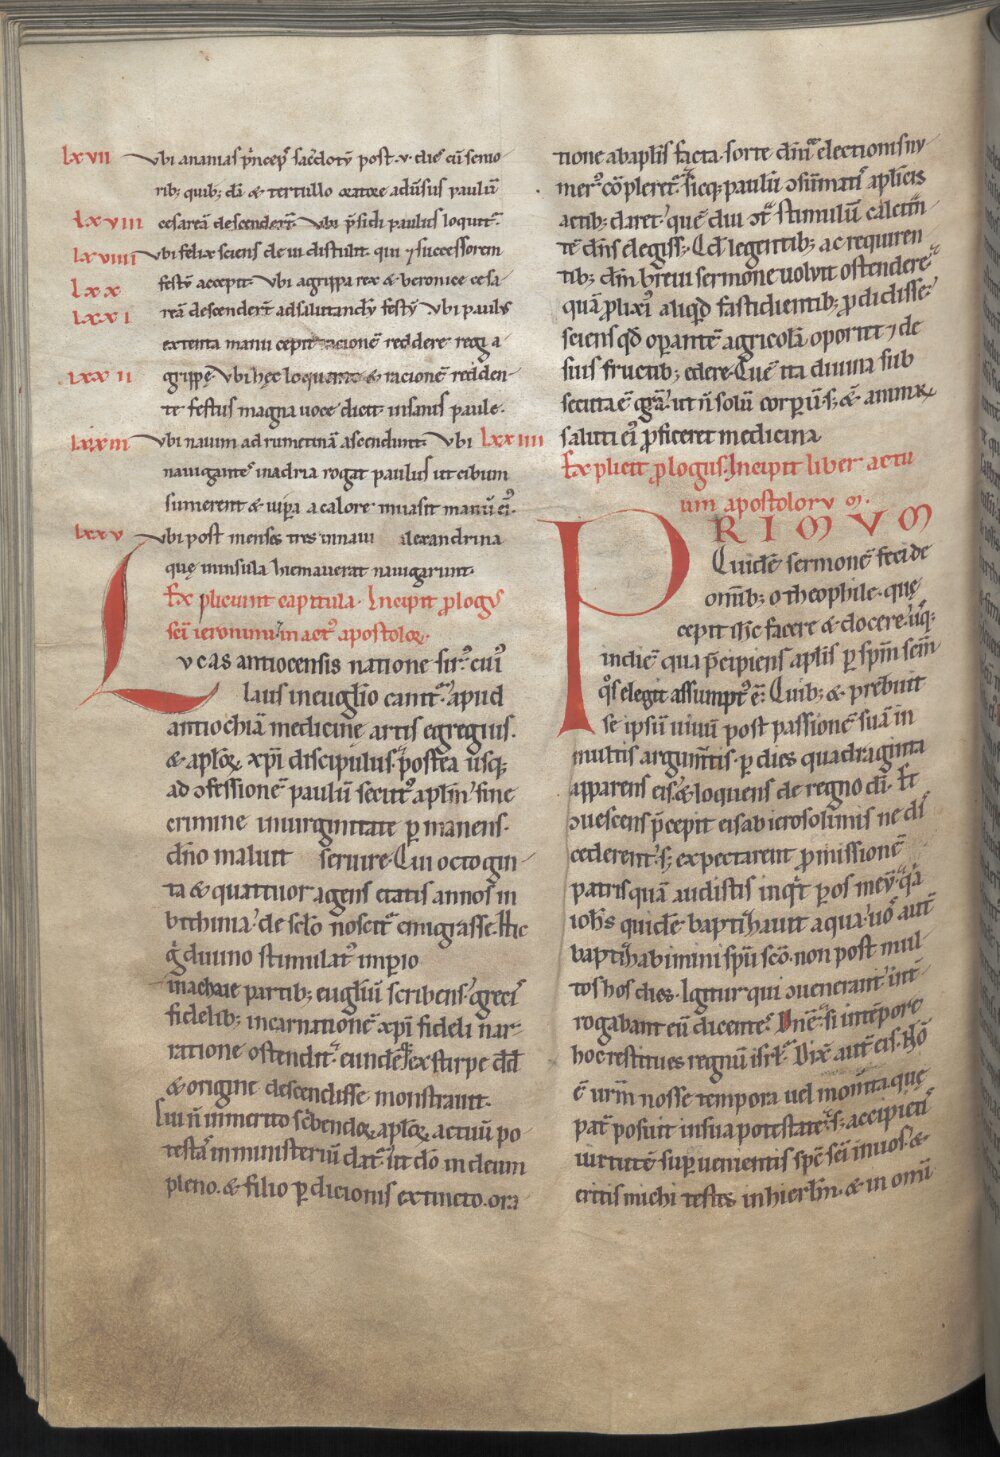 lxvii Vbi ananias p̄ncep̄ sac̄dotū post ·v· die cū senio
rib; quib;dā & tertullo oratore aduersus paulū
lxviii cesareā descenderet. Vbi p̄sidi paulus loquit̄
lxviiii Vbi felix sciens de uia distulit qui & successorem
lxx festū accepit. Vbi agrippa rex & beronice cesa
lxxi reā descenderet ad salutandū festū. Vbi paulus
extenta manu cepit racionē reddere regi a
lxxii grippę. Vbi hęc loquente & racionē redden
te festus magna uoce dicit insanis paule.
lxxiii Vbi nauim adrumetinā ascendunt. Vbi lxxiiii
nauigantes in adria rogat paulus ut cibum
sumerent & uip̄a a calore inuasit manū ei᷒.
lxxv Vbi post menses tres in naui alexandrina
quę in insula hiemauerat nauigarunt.
Expliciunt capitula. Incipit p̄logus
sc̄i ieronimi in act᷒ apostoloꝝ.
Lvcas antiocensis natione sir᷒. cui᷒
laus in euglio canit̄. apud
antiochiā medicine artis egregius.
& aploꝝ xp̄i discipulus. postea usq;
ad ɔfessionē paulū secut᷒ aplm̄. sine
crimine in uirginitate p̄manens.
dn̄o maluit seruire. Qui octogin
ta & quattuor agens etatis annos in
bithinia. de sclo noscit̄ emigrasse. Hic
g̊ diuino stimulat᷒ imp̄io
in achaie partib; eugliū scribens. grecis
fidelib; incarnationē xp̄i fideli nar
ratione ostendit. eundē q; ex stirpe dd̄
& origine descendisse monstrauit.
Cui n̄ inmerito sc̄bendoꝝ aploꝝ actuū po
testas in ministeriū dat̄. ut dō in deum
pleno. & filio p̄dicionis extincto. ora
tione ab aplis facta. sorte dn̄i electionis nu
mer᷒ cōpleret̄. sicq; paulū ɔsūmatiō aplicis
actib; daret. quē diu ɔt̄ stimulū calcit̄n
tē dn̄s elegiss;. Qd̄ legentib; ac requiren
tib; dm̄ breui sermone uolui ostendere
quā p̄lixi᷒ aliqd fastidientib; p̄didisse.
sciens qd̄ op̄antē agricolā oportet de
suis fructib; edere. Quē ita diuina sub
secuta ē gr̄a. ut n̄ solū corp̄ū s; & animꝝ
saluti ei᷒ p̄ficeret medicina
Explicit p̄logus. Incipit liber actu
um apostolorvm.
PRIMVM
Quidē sermonē feci de
omīb; o theophile. quę
cepit ih̄c facere & docere. usq;
in diē qua p̄cipiens aplis p̄ spm̄ scm̄
q᷒s elegit assumpt᷒ ē. Quib; & prebuit
se ipsū uiuū post passionē suā in
multis argum̄tis. p̄ dies quadraginta
apparens eis. & loquens de regno dī. Et
ɔuescens p̄cepit eis ab ierosolimis ne dis
cederent. s; expectarent p̄missionē
patris quā audistis inqt p̄ os meū. qa
ioh̄s quidē baptizauit aqua. uos aut̄
baptizabimini spū scō. non post mul
tos hos dies. Igitur qui ɔuenerant. int̄
rogabant eū dicentes. Dn̄e. si in tēpore
hoc restitues regnū isrl̄. Dix̄ aut̄ eis. Nō
ē ur̄m nosse tempora uel momta. quę
pat̄ posuit in sua potestate. s; accipietis
uirtutē superuenientis spē sc̄i in uos. &
eritis michi testes in hierlm̄. & in omī